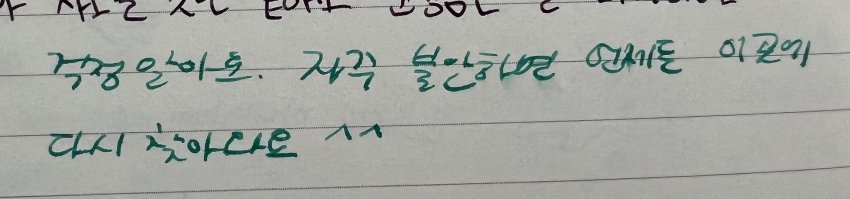 걱정 말아요. 자꾸 불안하면 언제든 이곳에
다시 찾아와요 ^^